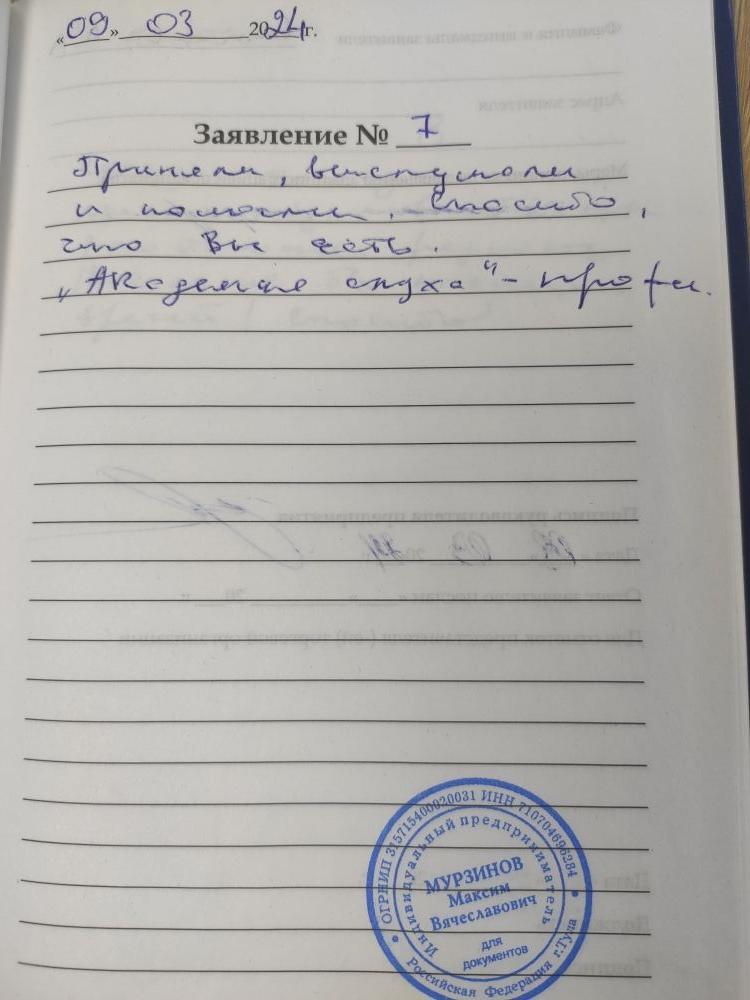 «09» 03 2024г.
Заявление № 7
Приняли, выслушали
и помогли. Спасибо,
что Вы есть.
„Академия слуха“ - профи.
ОГРНИП 315715400020031 ИНН 710704696284
Индивидуальный предприниматель
МУРЗИНОВ
Максим
Вячеславович
для
документов
Российская Федерация г.Тула